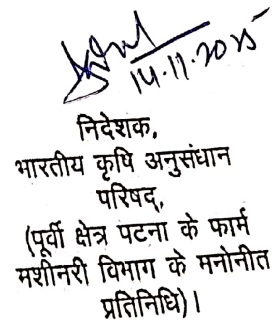 14.11.2025
निदेशक,
भारतीय कृषि अनुसंधान
परिषद्,
(पूर्वी क्षेत्र पटना के फार्म
मशीनरी विभाग के मनोनीत
प्रतिनिधि)।